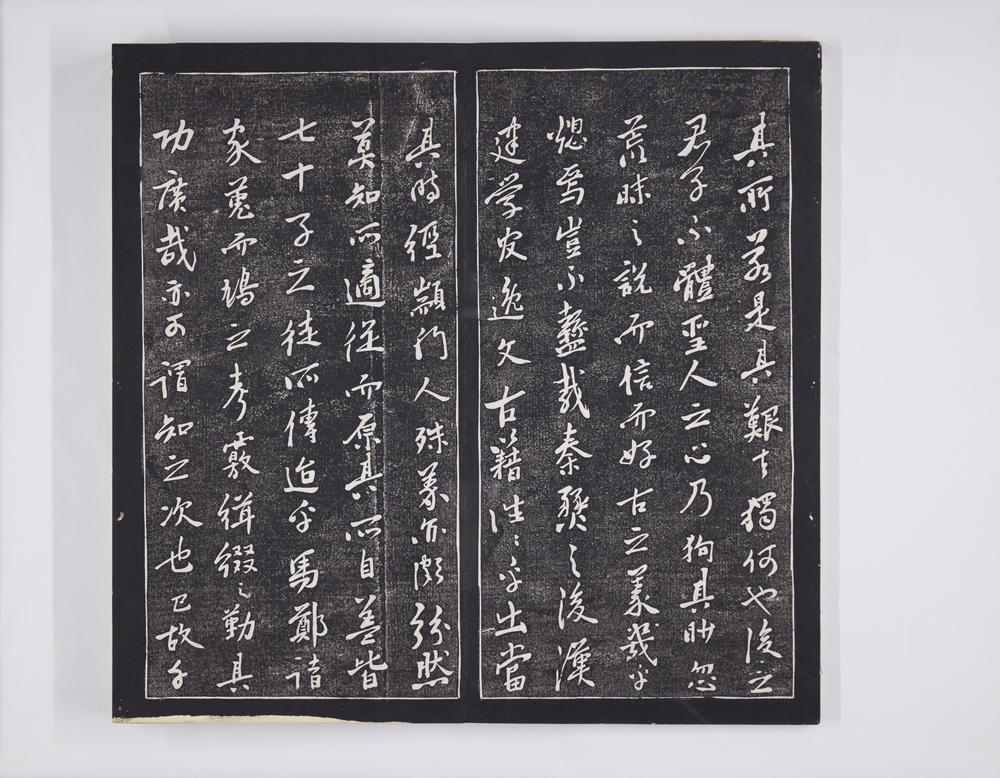 其所若是其艱獨何也後之
君子不體聖人之心乃狥其眇忽
荒昧之說而信而好古之義幾乎
熄焉豈不蠱哉秦燹之後漢
建学官逸文古籍往〻乎出當
其時經顓門人殊義亦頗紛然
莫知所適從而原其所自蓋皆
七十子之徒所傳迨乎馬鄭諸
家蒐而鳩之考覈緝綴之勤其
功廣哉亦可謂知之次也已故予